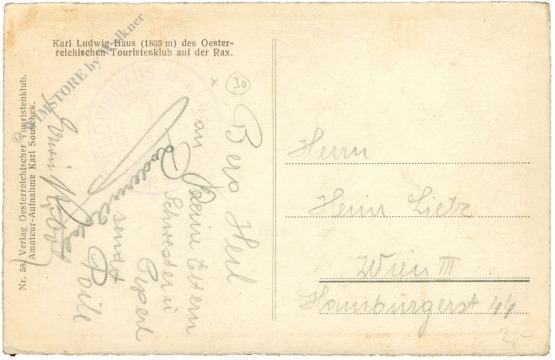 Karl Ludwig-Haus (1803 m) des Oester-
reichischen Touristenklub auf der Rax.
Nr. 58 Verlag Oesterreichischer Touristenklub.
Amateur-Aufnahme Karl Souschek.
30
Berg Heil
an Deine Eltern
Schwester u
Peperl
sendet
Herrn
Heinr Lietz
Wien III
Hamburgerst 44
2,-